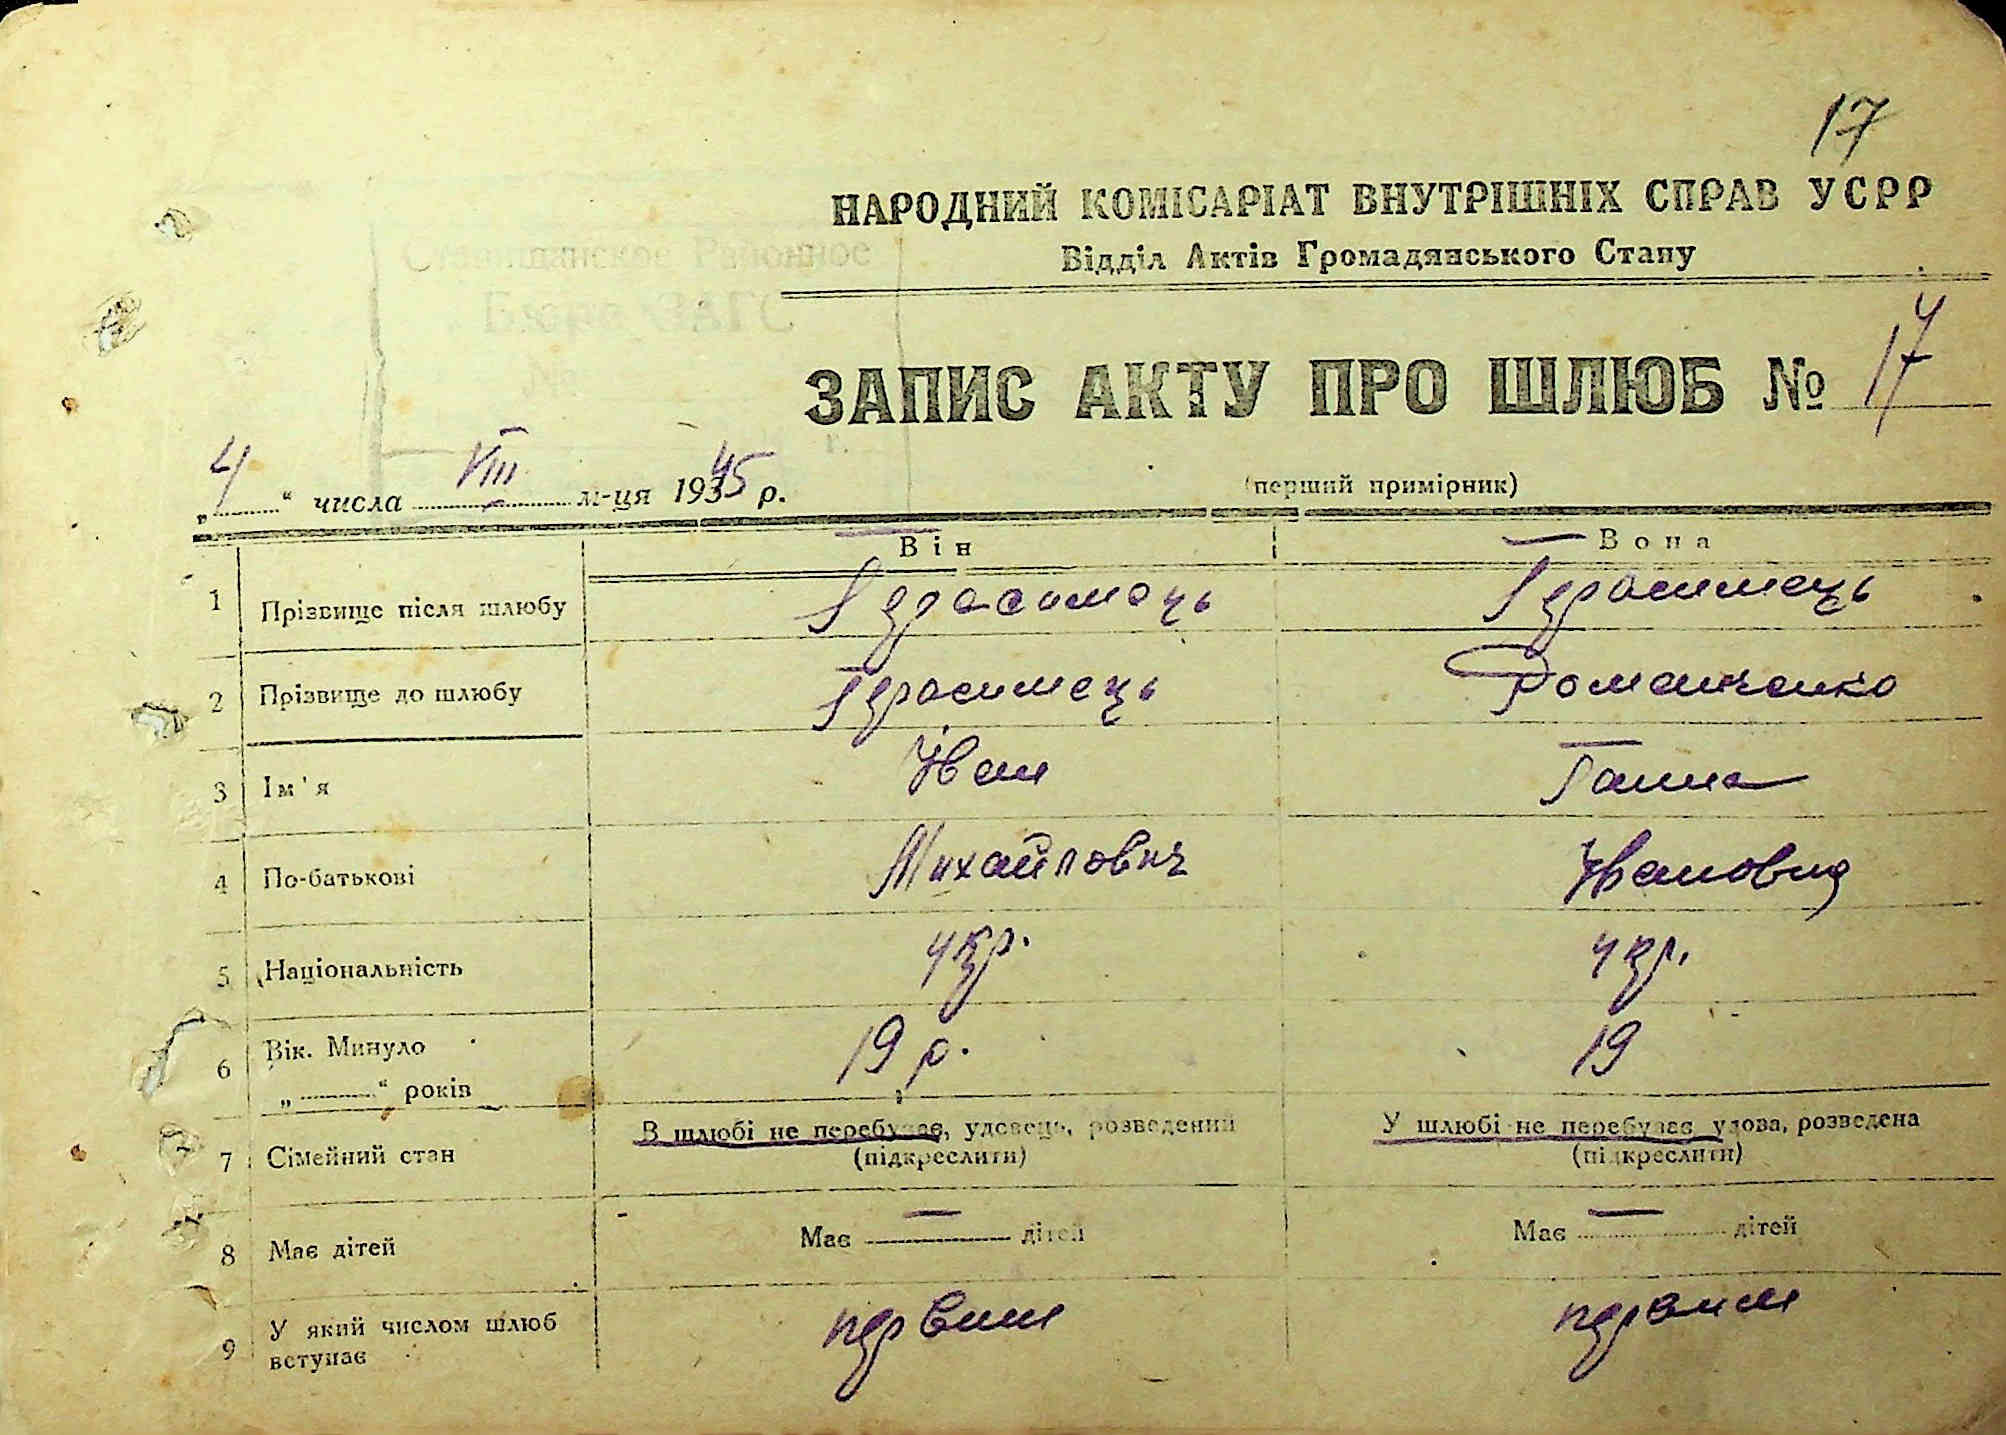 17
НАРОДНИЙ КОМІСАРІАТ ВНУТРІШНІХ СПРАВ УСРР
Відділ Актів Громадянського Стану
Станищанское Районное
Бюро ЗАГС
№
г.
ЗАПИС АКТУ ПРО ШЛЮБ № 17
„4“ числа VIII м-ця 1945 р.
(перший примірник)
Він Вона
1 Прізвище після шлюбу Герасимець Герасимець
2 Прізвище до шлюбу Герасимець Романченко
3 Ім'я Іван Ганна
4 По-батькові Михайлович Ивановна
5 Національність укр. укр.
6 Вік. Минуло 19 р. 19
„ “ років
7 Сімейний стан В шлюбі не перебуває, удовець, розведений У шлюбі не перебуває удова, розведена
(підкреслити) (підкреслити)
8 Має дітей Має — дітей Має — дітей
9 У який числом шлюб первий первий
вступає